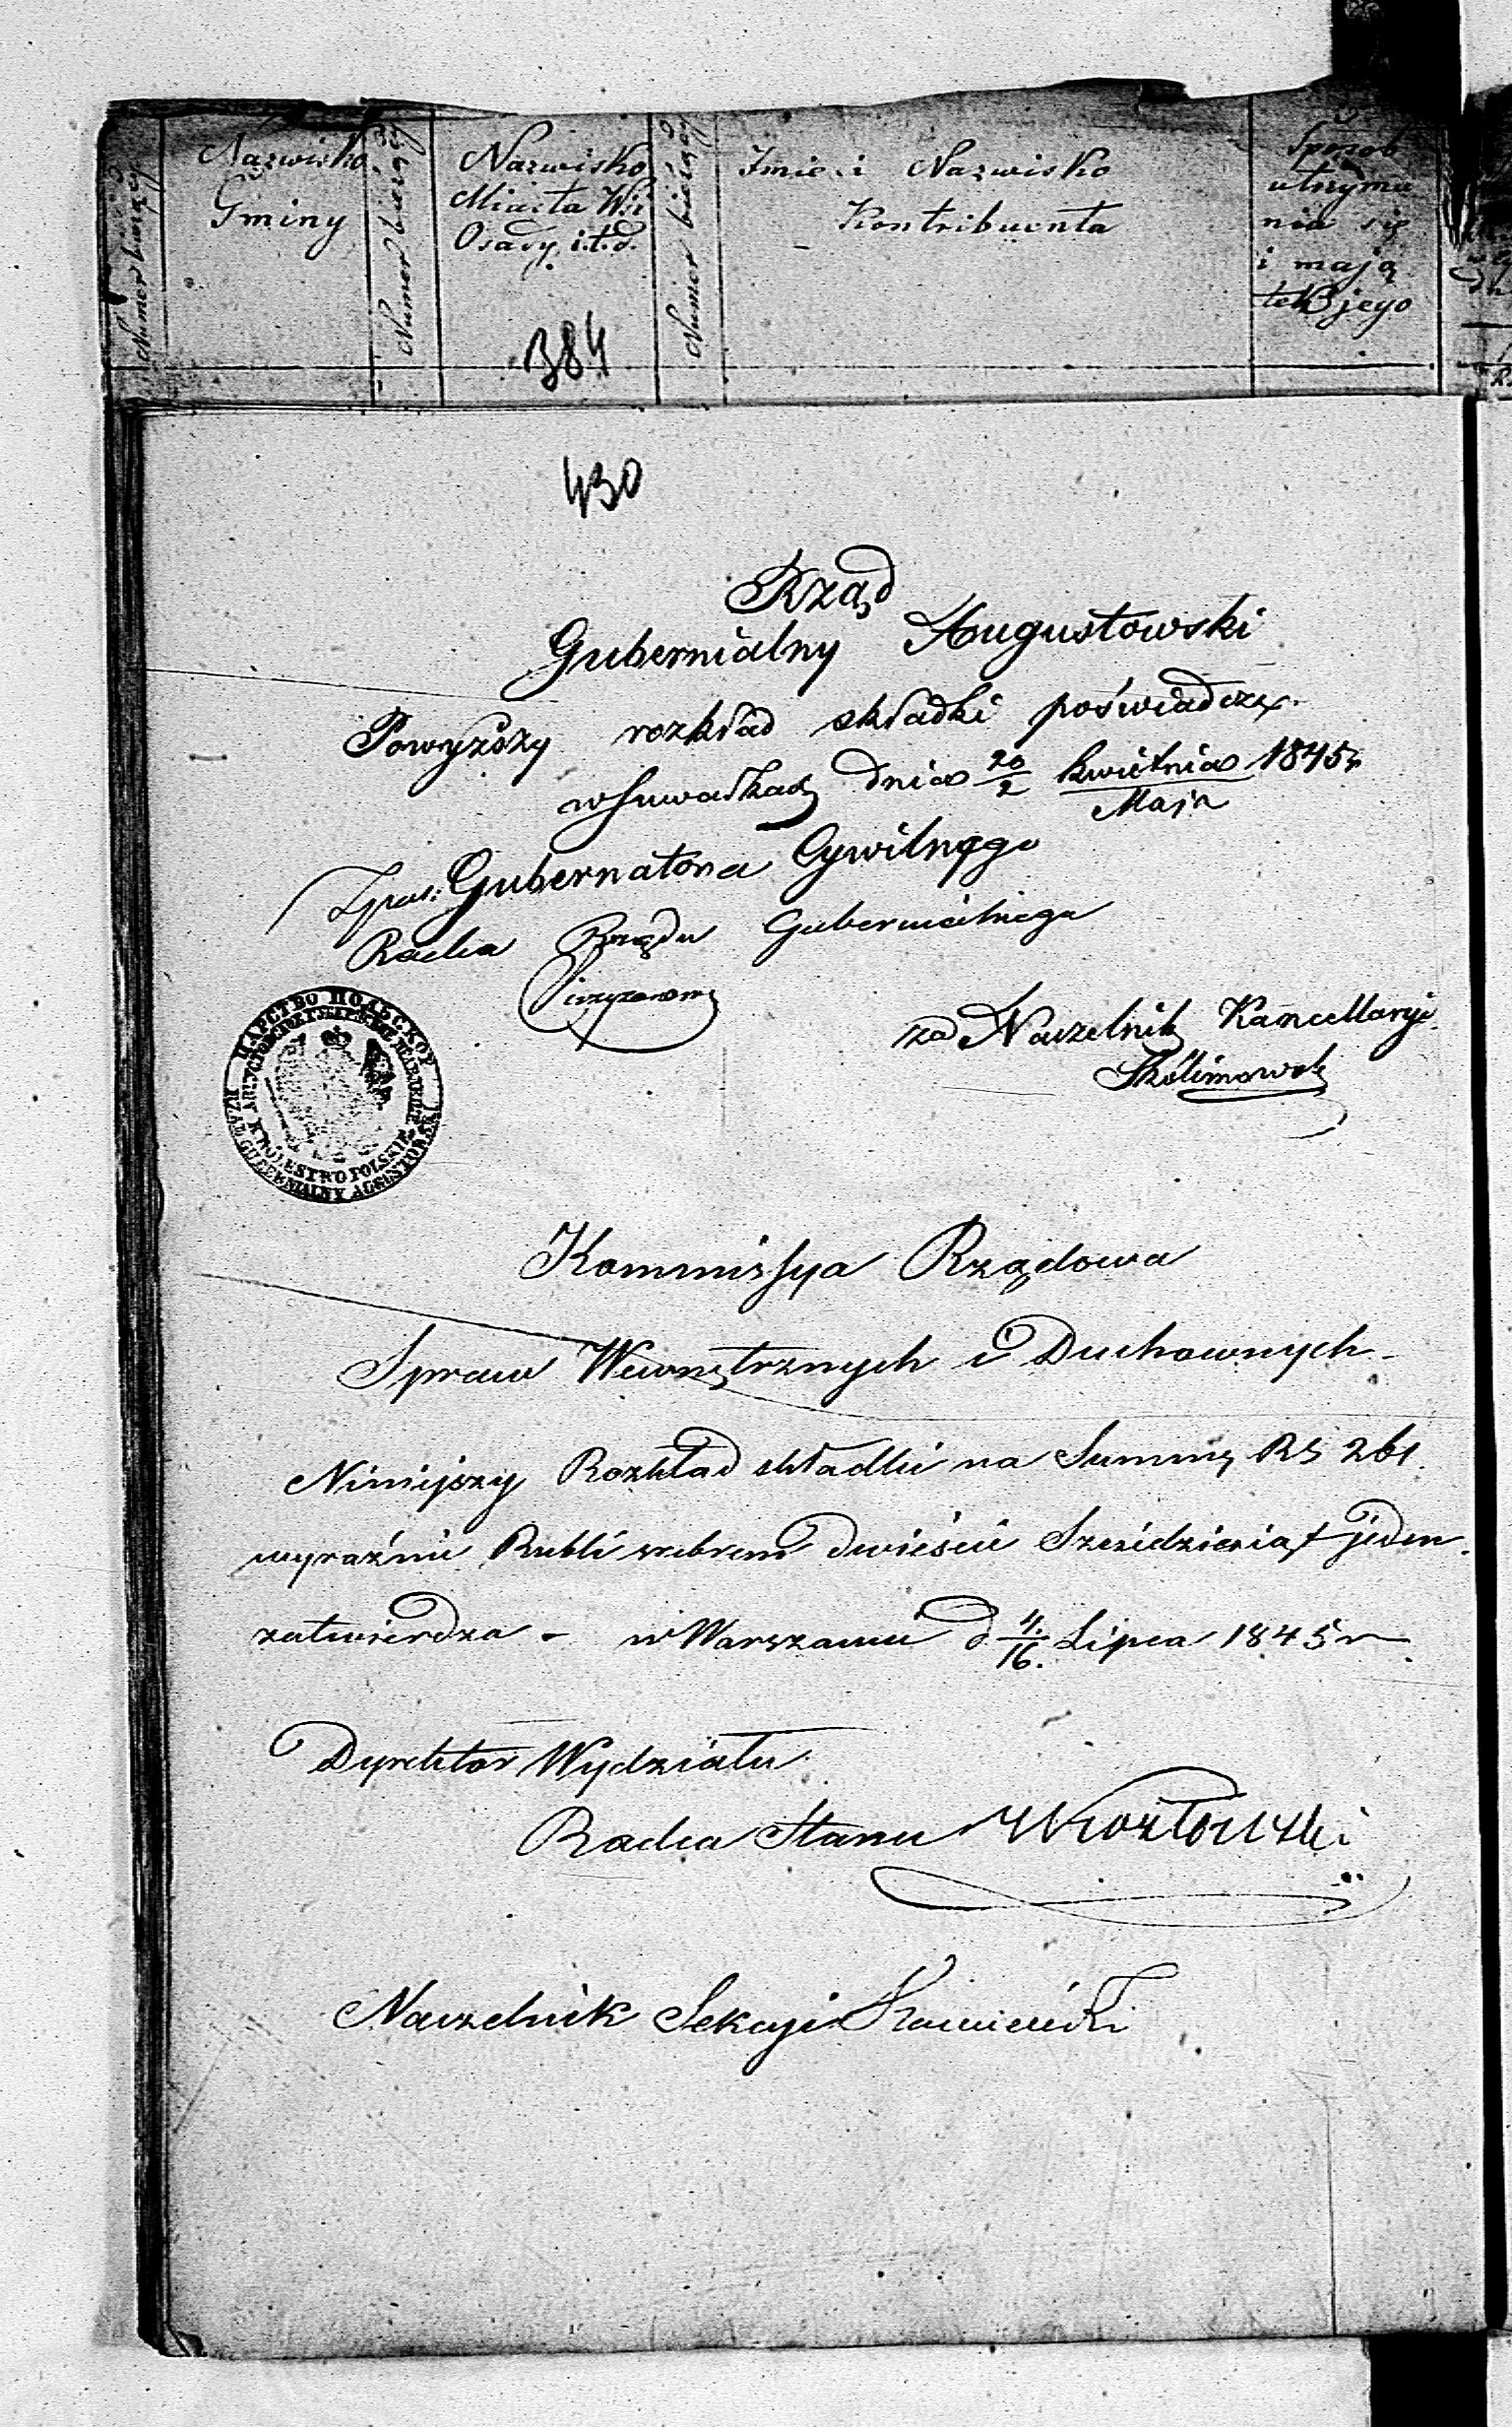 Numer bieżący
Nazwisko
Gminy
Numer bieżący
Nazwisko
Miasta Wsi
Osady i.t.d.
Numer bieżący
Imie i Nazwisko
Kontribuenta
Sposob
utrzyma
nia się
i mają
tek jego
384
430
Rząd
Gubernialny Augustowski
Powyższy rozkład składki poświadcza.
w Suwałkach dnia 20/2 Kwietnia/Maja 1845 r
Gubernatora Cywilnego
Radca Rządu Gubernialnego
za Naczelnik Kancellaryi
Skolimowski
ЦАРСТВО ПОЛЬСКОЕ
KRÓLESTWO POLSKIE
RZĄD GUBERNIALNY AUGUSTOWSKI
Kommissya Rządowa
Spraw Wewnętrznych i Duchownych
Niniejszy Rozkład składki na Summę RS 261.
wyraźnie Rubli srebrem dwieście Sześćdziesiąt jeden.
zatwierdza - w Warszawie d 4/16. Lipca 1845 r
Dyrektor Wydziału
Radca Stanu Kozłowski
Naczelnik Sekcyi Kamieński